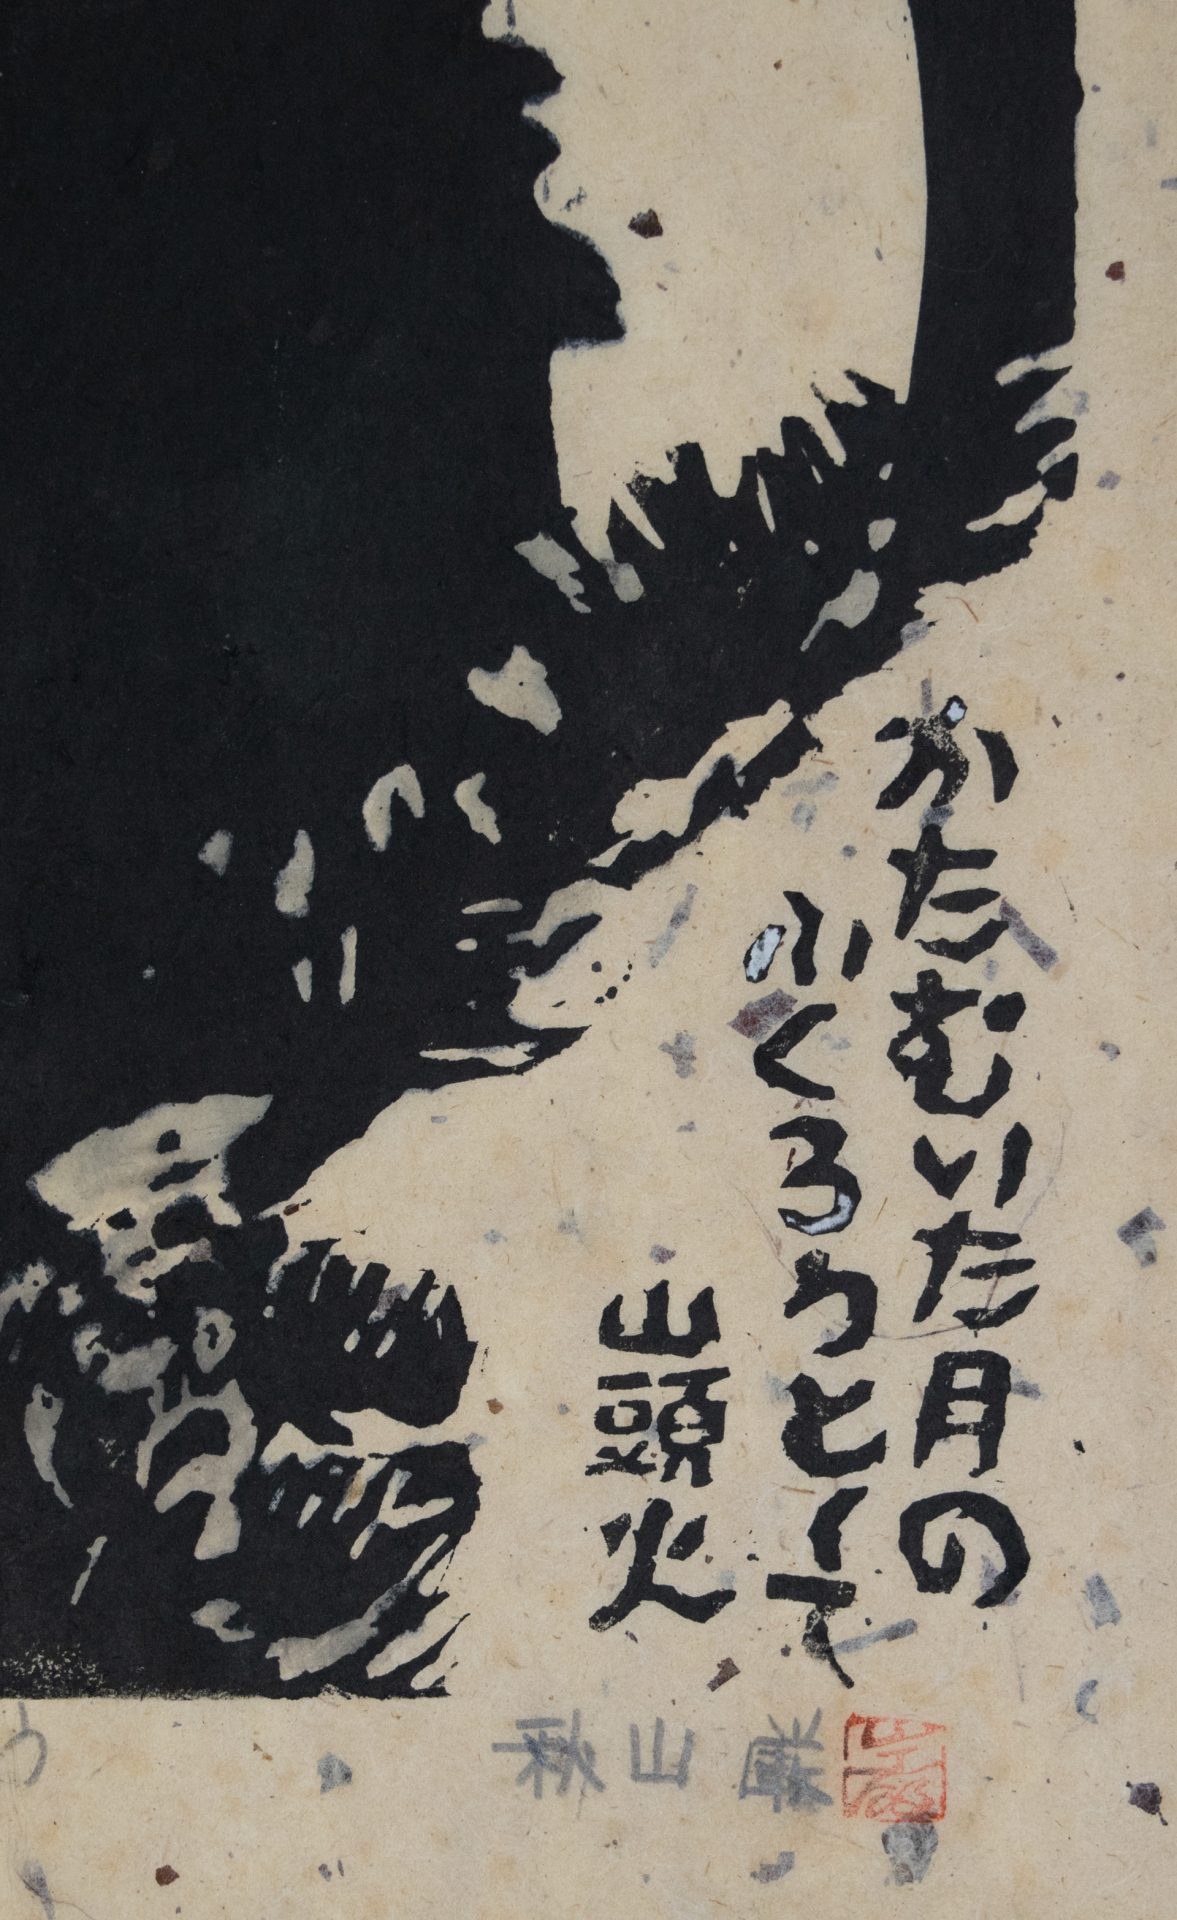 かたむいた月の
ふくろうとして
山頭火
秋山巌